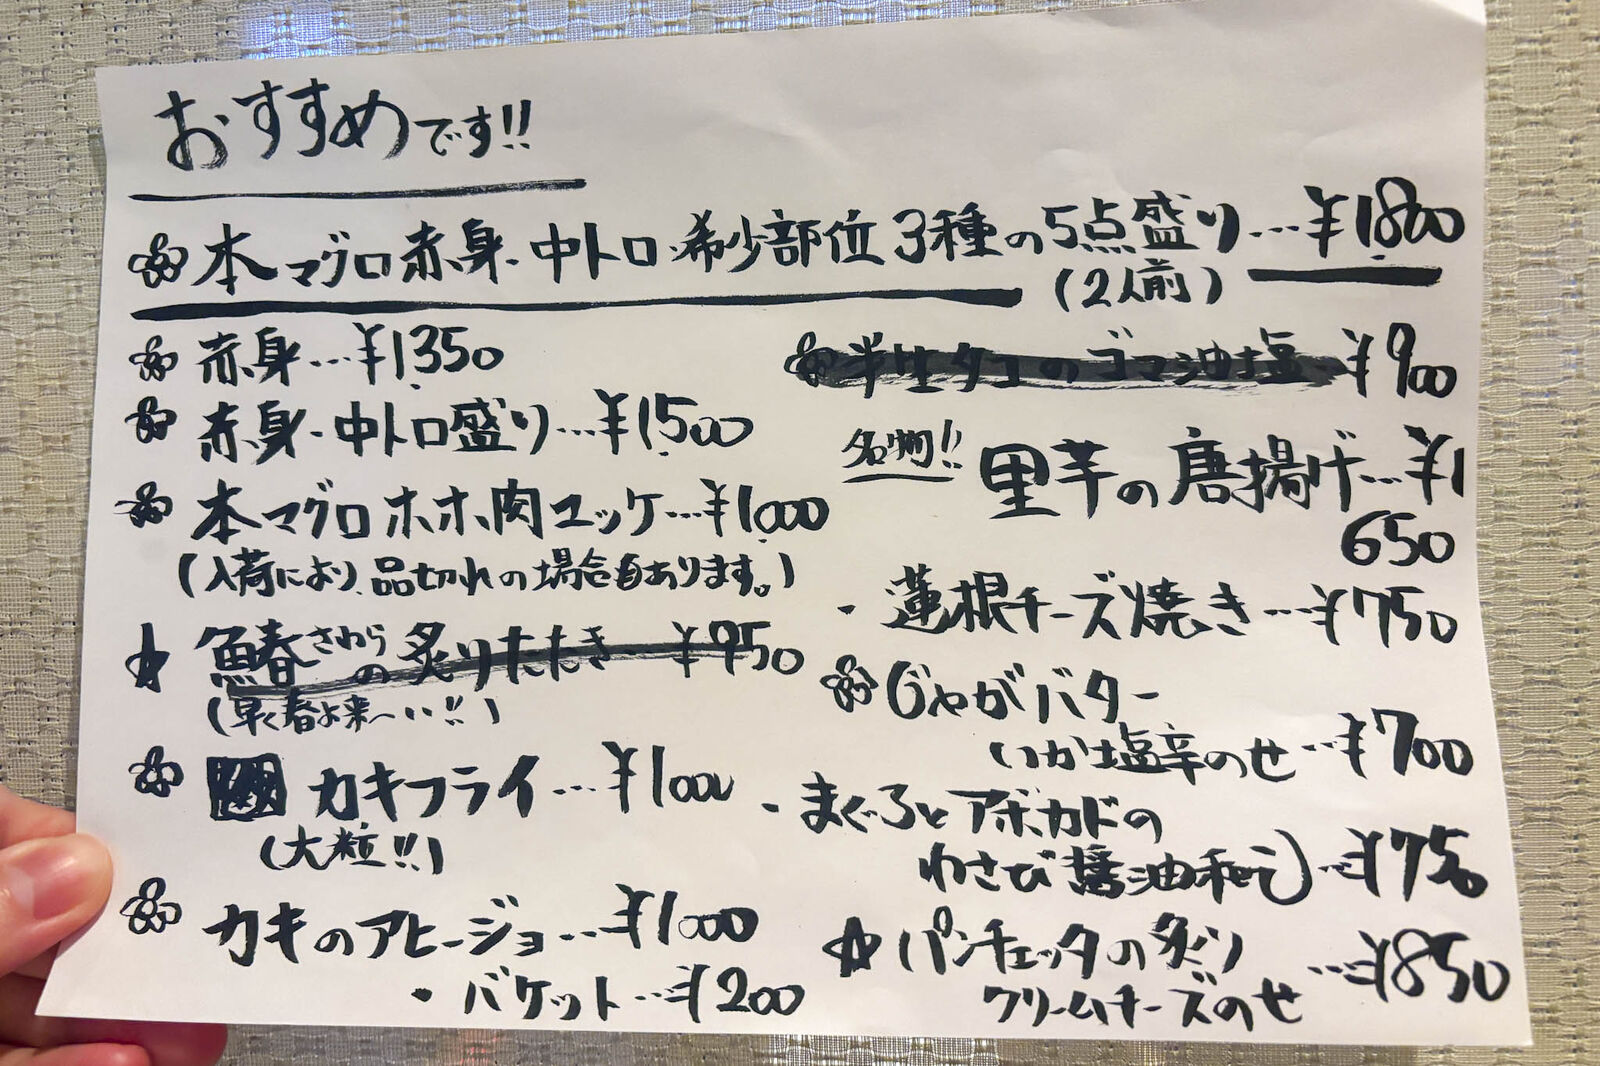 おすすめです!!
本マグロ赤身・中トロ・希少部位3種の5点盛り…¥1800
(2人前)
赤身…¥1350
赤身・中トロ盛り…¥1500
本マグロホホ肉ユッケ…¥1000
(入荷により、品切れの場合もあります。)
鰆さわらの炙りたたき…¥950
(早く春よ来~い!!)
カキフライ…¥1000
(大粒!!)
カキのアヒージョ…¥1000
・バケット…¥200
半生タコのゴマ油塩…¥900
名物!! 里芋の唐揚げ…¥
650
・蓮根チーズ焼き…¥750
じゃがバター
いか塩辛のせ…¥700
・まぐろとアボカドの
わさび醤油和え…¥750
パンチェッタの炙り
クリームチーズのせ…¥850